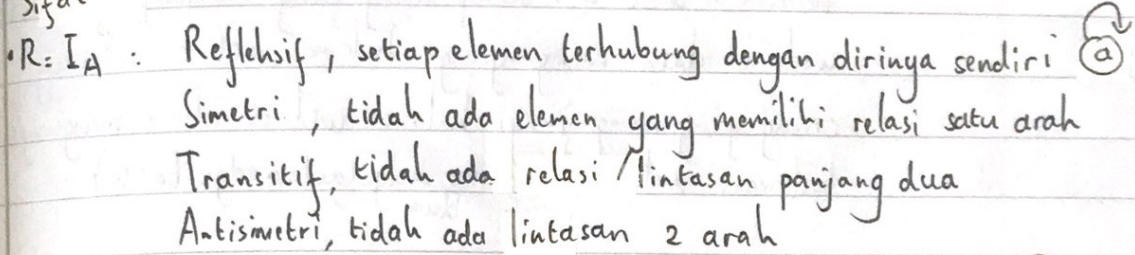 • R = I_A : Refleksif, setiap elemen terhubung dengan dirinya sendiri a
Simetri, tidak ada elemen yang memiliki relasi satu arah
Transitif, tidak ada relasi / lintasan panjang dua
Antisimetri, tidak ada lintasan 2 arah